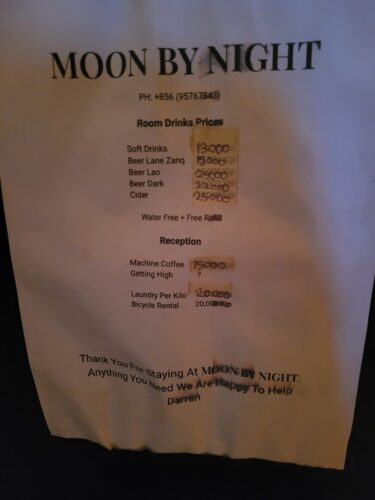 MOON BY NIGHT
PH: +856 (95767543)
Room Drinks Prices
Soft Drinks 13000
Beer Lane Zanq 15000
Beer Lao 25000
Beer Dark 22000
Cider 25000
Water Free + Free Refill
Reception
Machine Coffee 15000
Getting High ?
Laundry Per Kilo 20000
Bicycle Rental 20,000Kip
Thank You For Staying At MOON BY NIGHT.
Anything You Need We Are Happy To Help
Darren